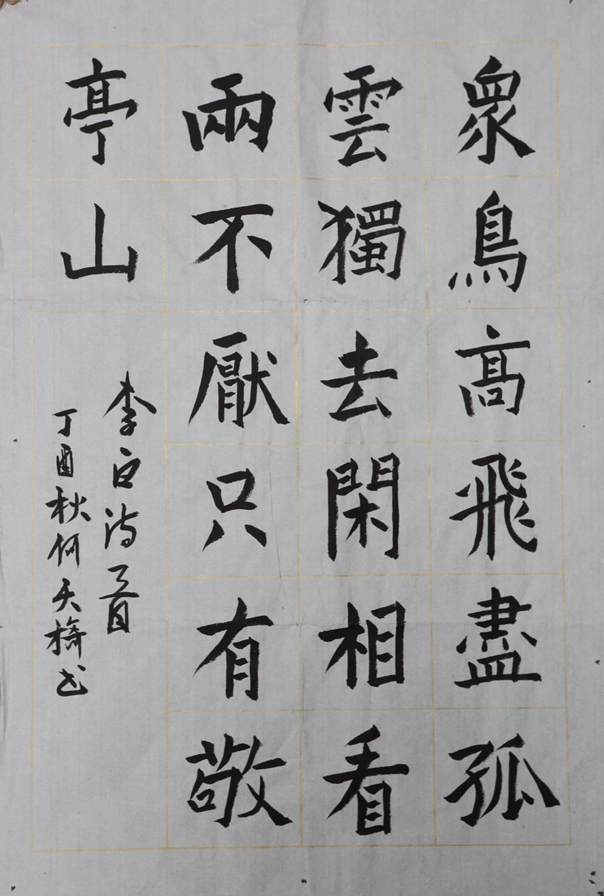 衆鳥高飛盡孤
雲獨去閑相看
兩不厭只有敬
亭山
李白詩一首
丁酉秋何天橋書